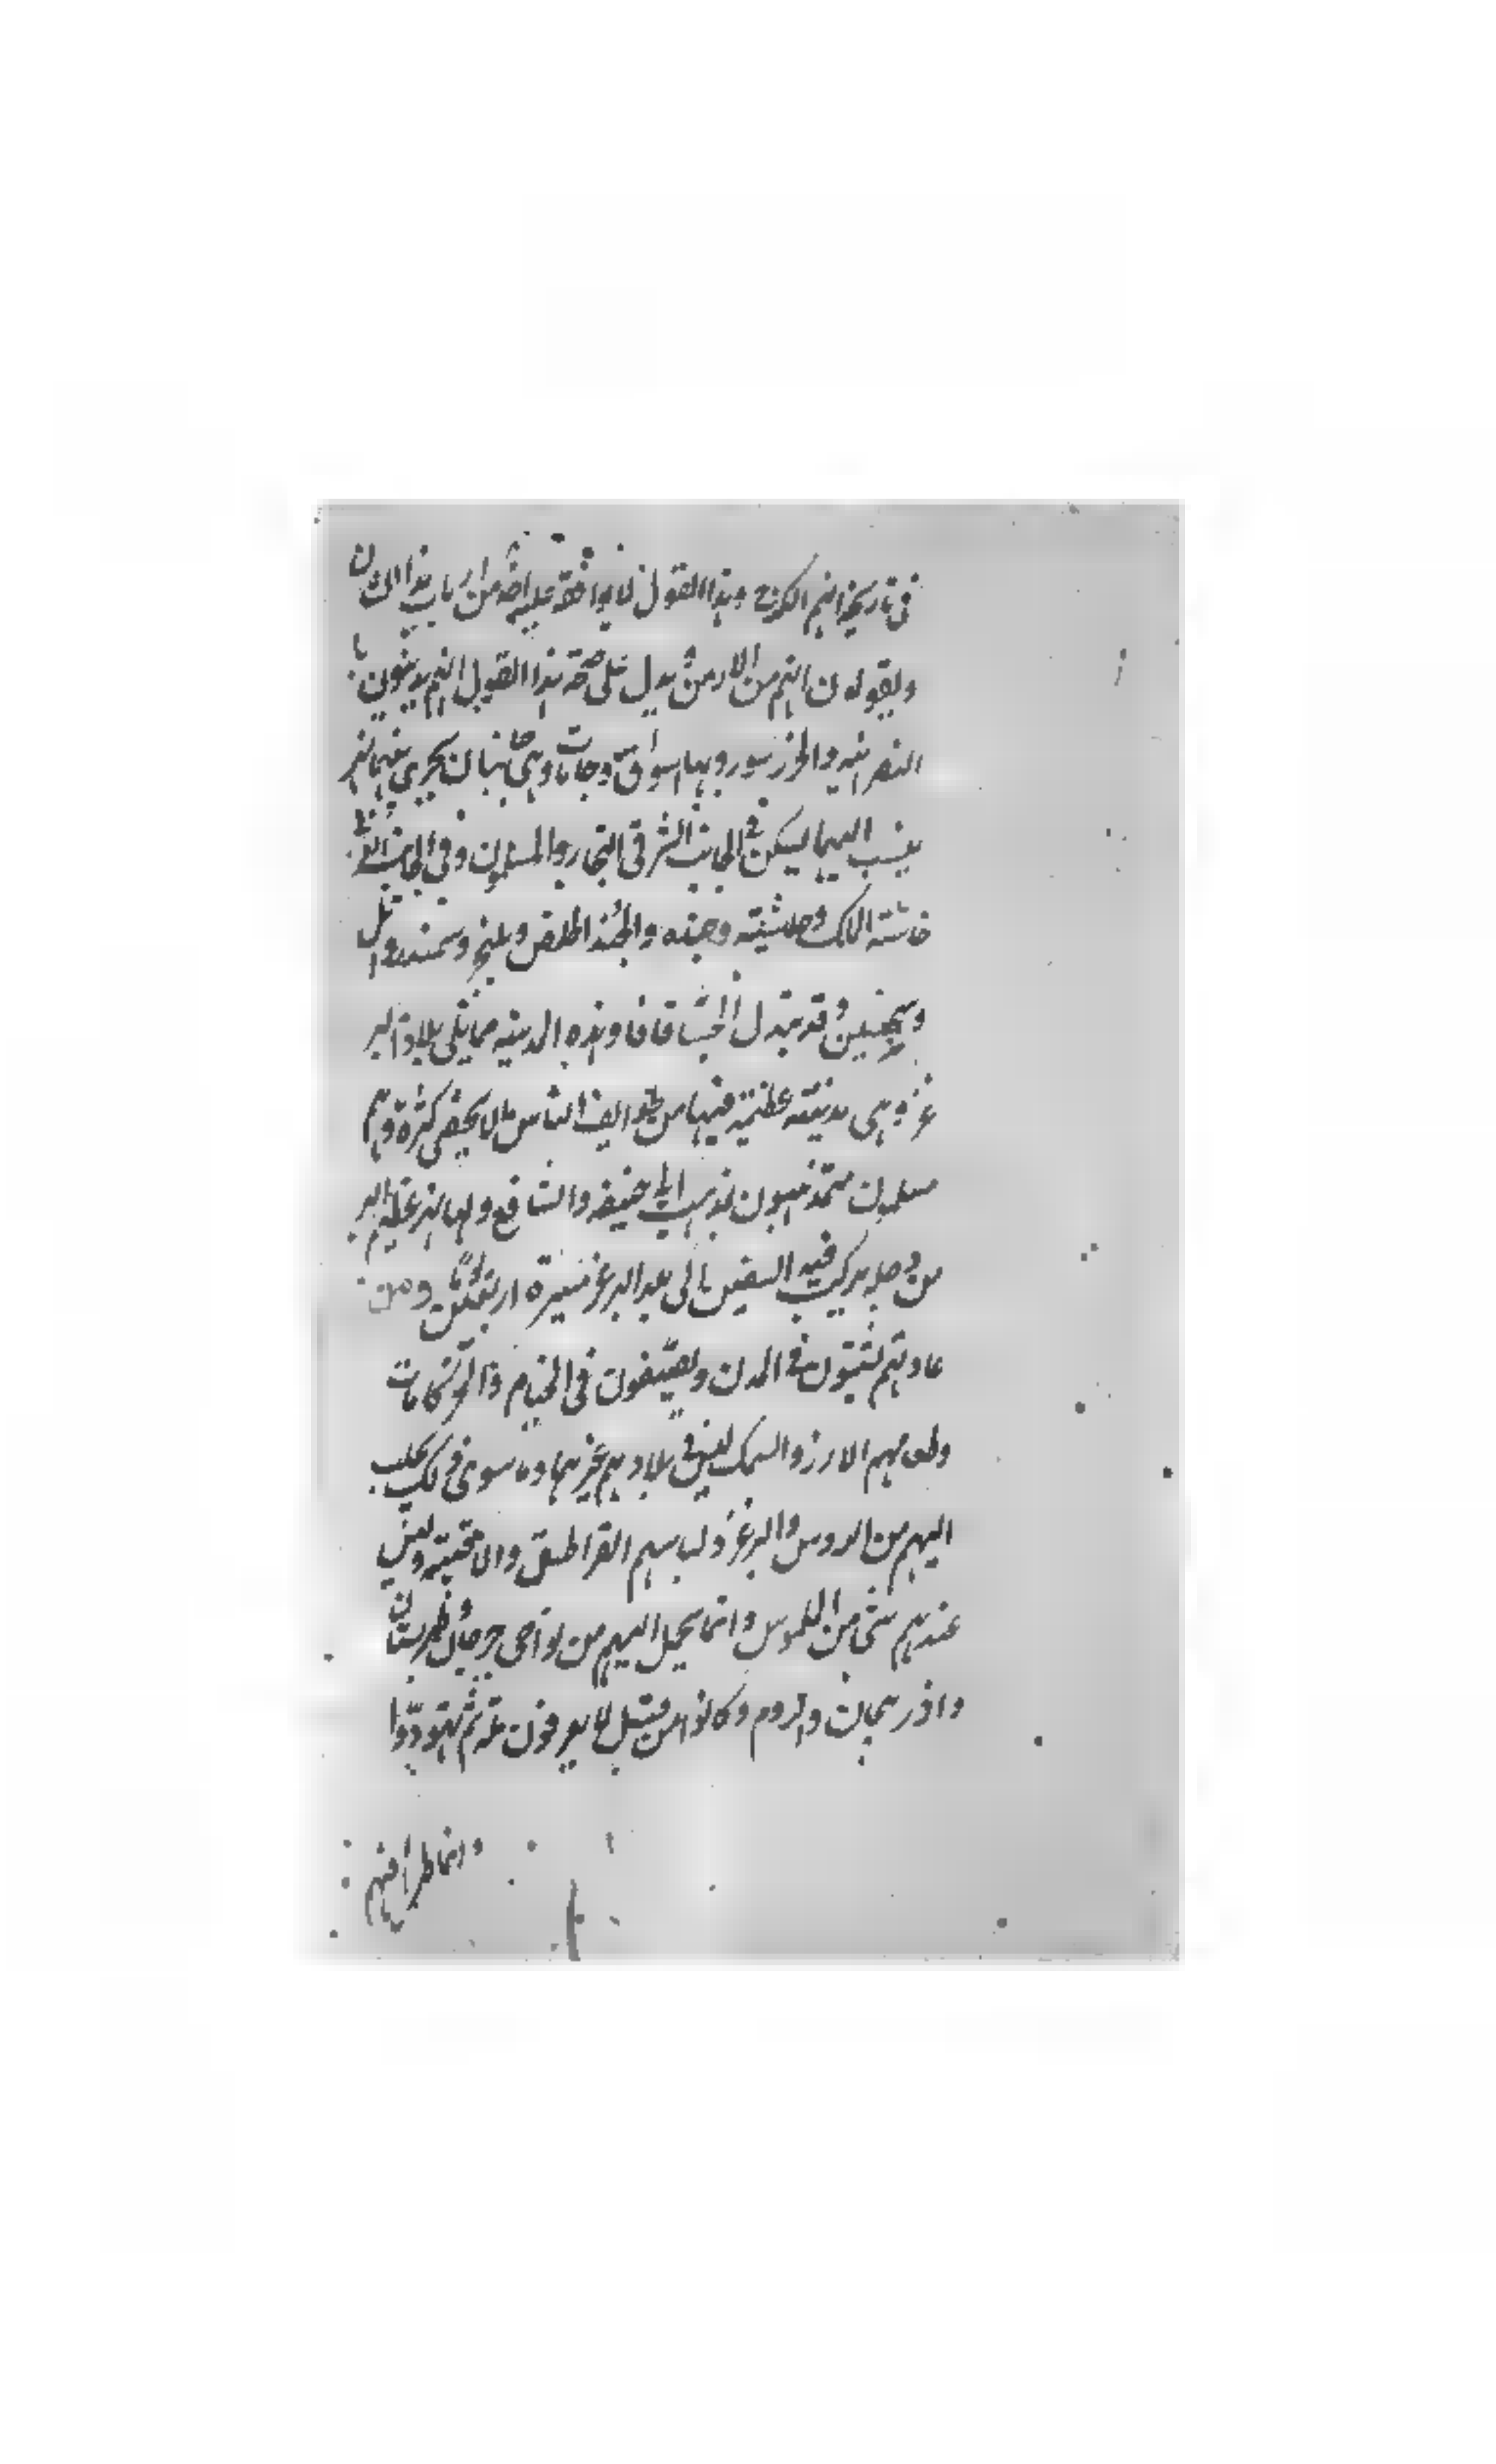 فى تاريخ انهم الكرج وهذا القول لا يوافقه عليه احد من ارباب هذا الشان
ويقولون انهم من الارمن يدل على صحة هذا القول انهم يدينون با
النصرانيه والخزر سور وبها اسواق وحمامات وهى جانبان يجرى بينهما نهر
ينسب اليها يسكن فى الجانب الشرقى التجار والمسلمون وفى الجانب الغربى
خاصته الملك وحاشيته وجنده والجند الخلص وبلنجر وسمندر واتل
وقد تبدل الخاء قافا وهذه المدينه مما يلى بلاد البر
غز وهى مدينة عظيمة فيها من طوايف الناس ما لا يحصى كثرة وهم
مسلمون متمذهبون بمذهب ابى حنيفه والشافعى ولها نهر عظيم اكبر
من دجله يركب فيه السفين الى بلد البرغز مسيرة اربعين يوما ومن
عادتهم يشتون فى المدن ويصيفون فى الخيام والخركاهات
وطعامهم الارز والسمك ليس فى بلادهم غيرهما وما سوى ذلك يجلب
اليهم من الروس والبرغز ولباسهم القراطق والاقبية وليس
عندهم شى من الملبوس وانما يحمل اليهم من نواحى جرجان وطبرستان
واذربيجان والروم وكانوا من قبل لا يعرفون ملة ثم تهودوا
وانما طرا فيهم